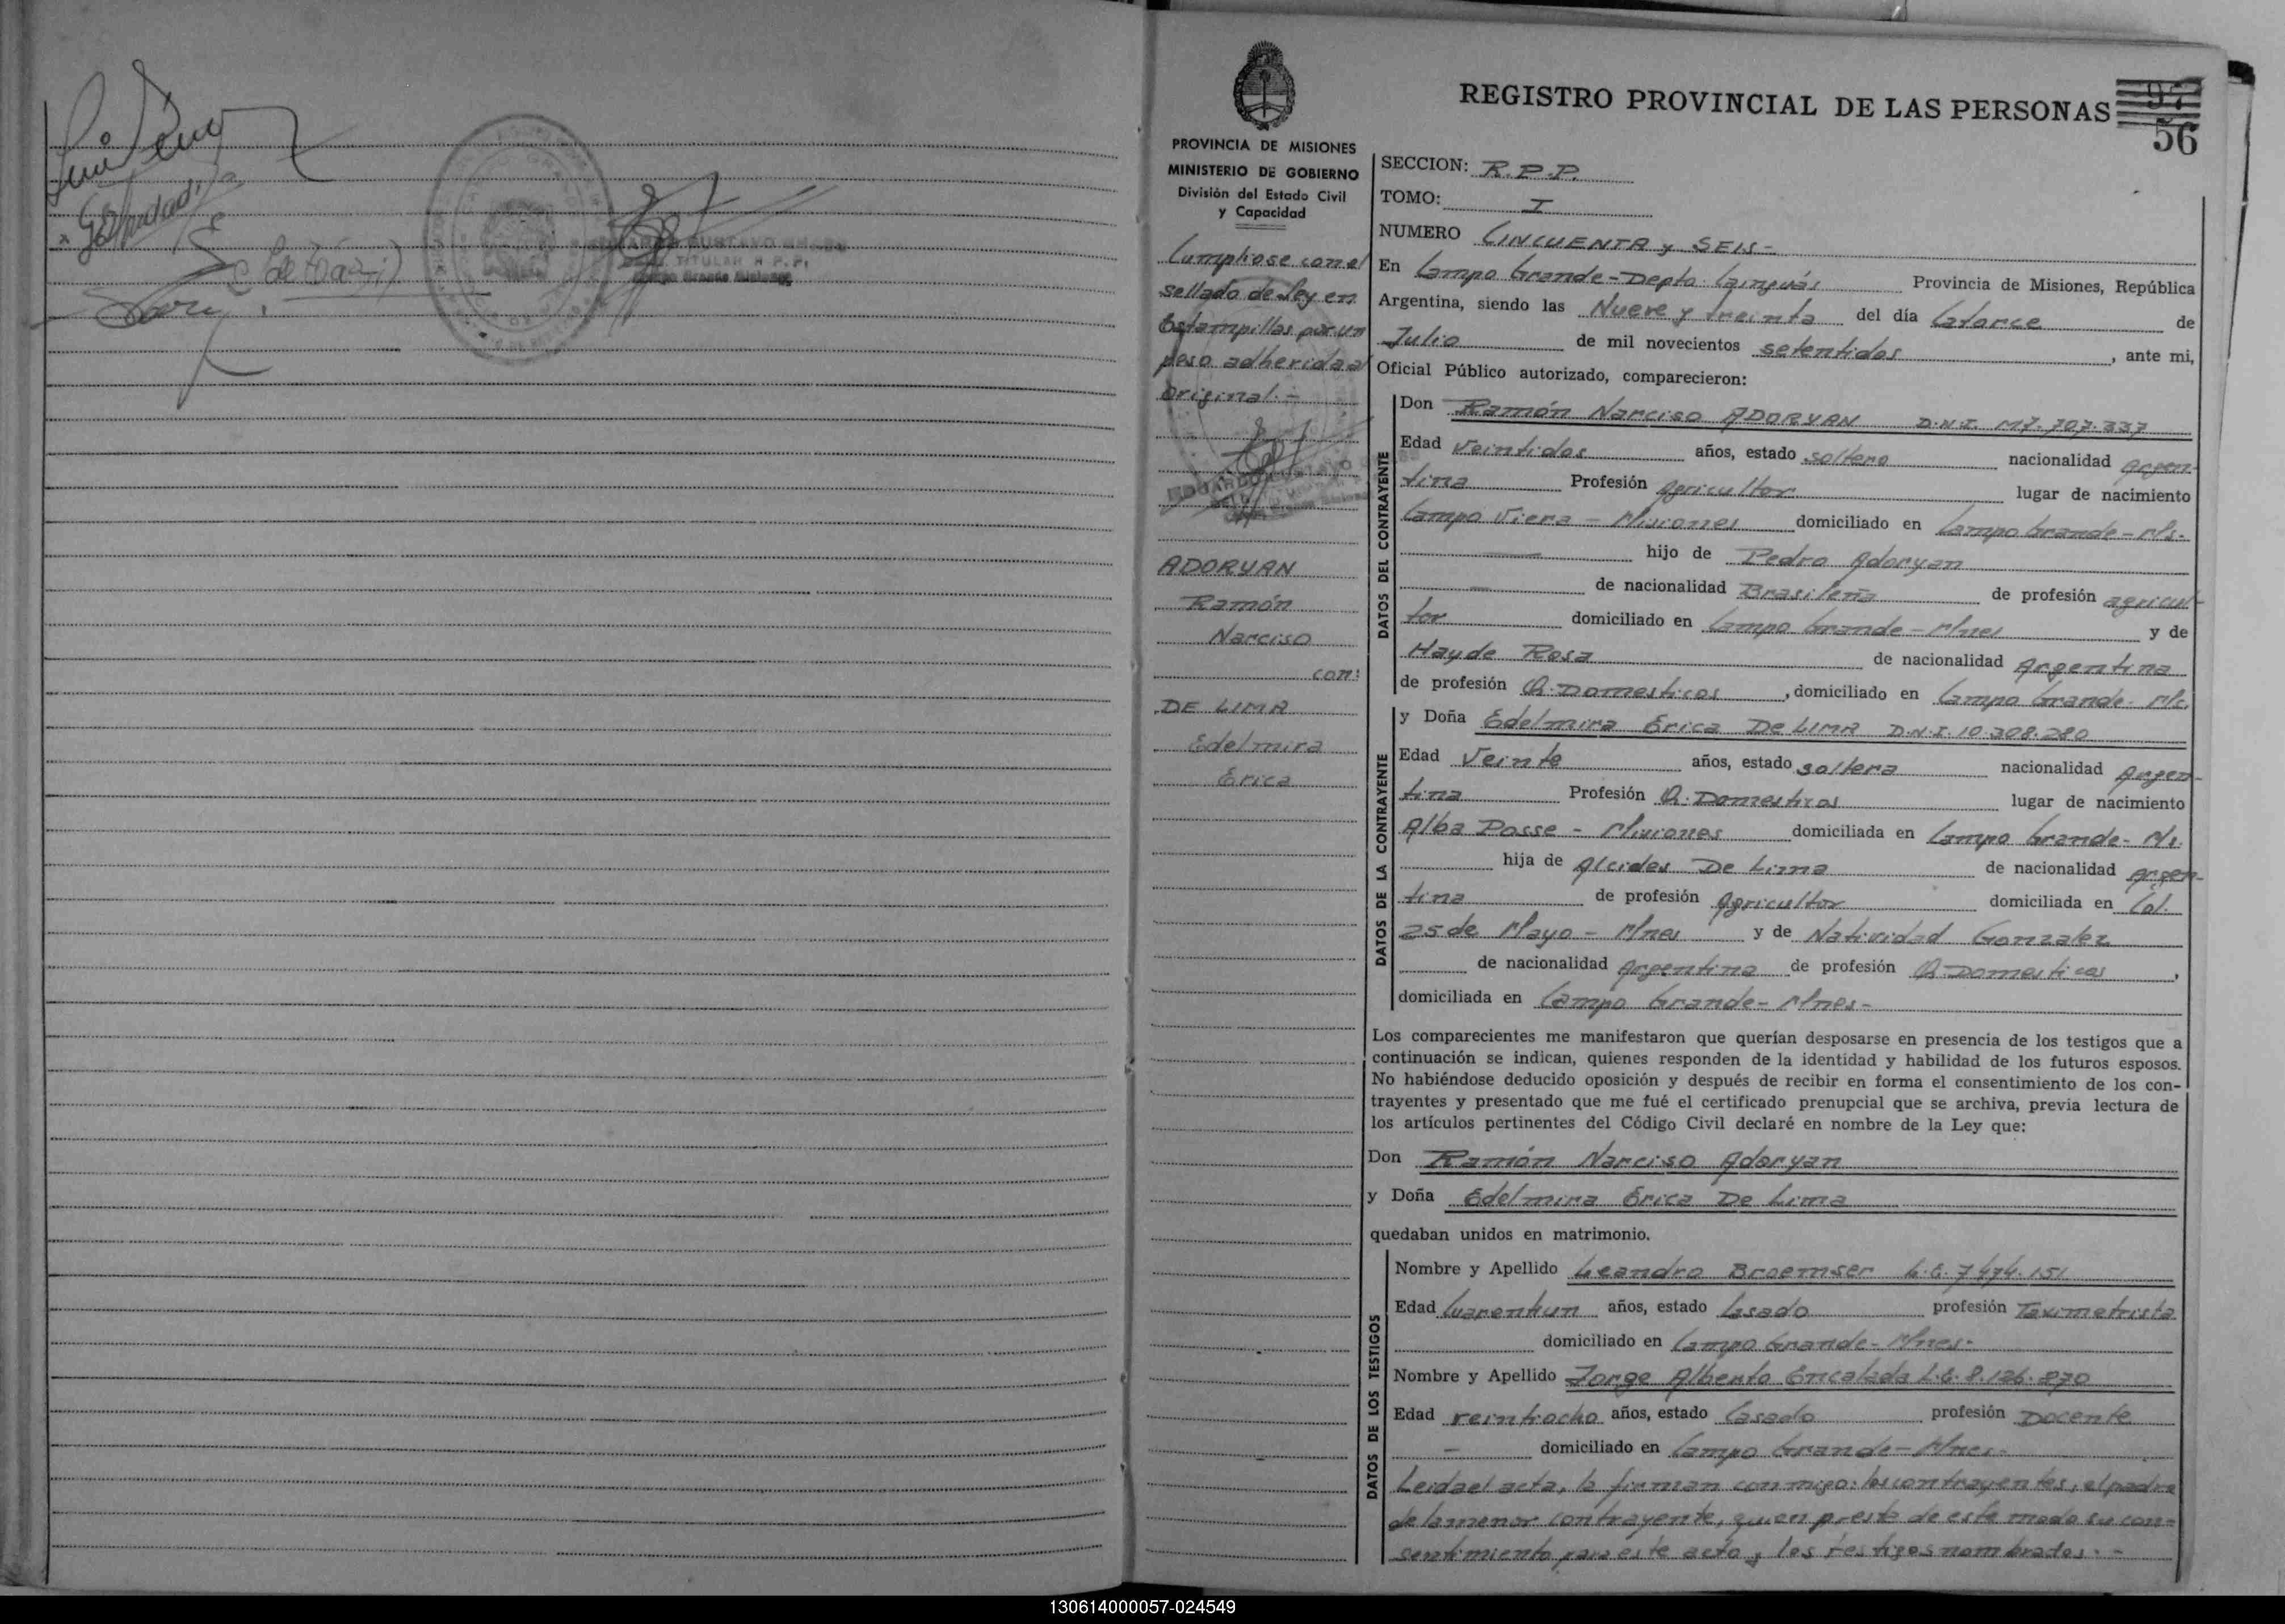 REGISTRO PROVINCIAL DE LAS PERSONAS
56
PROVINCIA DE MISIONES
MINISTERIO DE GOBIERNO
División del Estado Civil
y Capacidad
Cumpliose con el
sellado de ley en
Estampillas por un
peso adherida al
Original.-
ADORYAN
Ramón
Narciso
con:
DE LIMA
Edelmira
Erica
SECCION: R.P.P.
TOMO: I
NUMERO CINCUENTA y SEIS-
En Campo Grande-Depto Cainguás Provincia de Misiones, República
Argentina, siendo las Nueve y treinta del día Catorce de
Julio de mil novecientos setentidos, ante mi,
Oficial Público autorizado, comparecieron:
DATOS DEL CONTRAYENTE
Don Ramón Narciso ADORYAN D.N.I. M7.707.337
Edad Veintidos años, estado soltero nacionalidad Argen-
tina Profesión Agricultor lugar de nacimiento
Campo Viera - Misiones domiciliado en Campo Grande-Ms.
hijo de Pedro Adoryan
de nacionalidad Brasileña de profesión agricul-
tor domiciliado en Campo Grande-Mnes y de
Hayde Rosa de nacionalidad Argentina
de profesión Q.Domesticos, domiciliado en Campo Grande-Ms.
DATOS DE LA CONTRAYENTE
y Doña Edelmira Erica De LIMA D.N.I. 10.308.280
Edad Veinte años, estado soltera nacionalidad Argen-
tina Profesión Q.Domesticos lugar de nacimiento
Alba Posse - Misiones domiciliada en Campo Grande-Ms.
hija de Alcides De Lima de nacionalidad argen-
tina de profesión Agricultor domiciliada en Col.
25 de Mayo - Mnes y de Natividad Gonzalez
de nacionalidad Argentina de profesión Q.Domesticos,
domiciliada en Campo Grande-Mnes-
Los comparecientes me manifestaron que querían desposarse en presencia de los testigos que a
continuación se indican, quienes responden de la identidad y habilidad de los futuros esposos.
No habiéndose deducido oposición y después de recibir en forma el consentimiento de los con-
trayentes y presentado que me fué el certificado prenupcial que se archiva, previa lectura de
los artículos pertinentes del Código Civil declaré en nombre de la Ley que:
Don Ramón Narciso Adoryan
y Doña Edelmira Erica De Lima
quedaban unidos en matrimonio.
DATOS DE LOS TESTIGOS
Nombre y Apellido Leandro Broemser L.E. 7.474.151
Edad Cuarentiun años, estado Casado profesión Taximetrista
domiciliado en Campo Grande-Mnes-
Nombre y Apellido Jorge Alberto Encalada L.E. 8.126.870
Edad veintiocho años, estado Casado profesión Docente
- domiciliado en Campo Grande-Mnes-
Leida el acta, la firman conmigo: los contrayentes, el padre
de la menor contrayente, quien presta de este modo su con-
sentimiento para este acto y los testigos nombrados.-
130614000057-024549